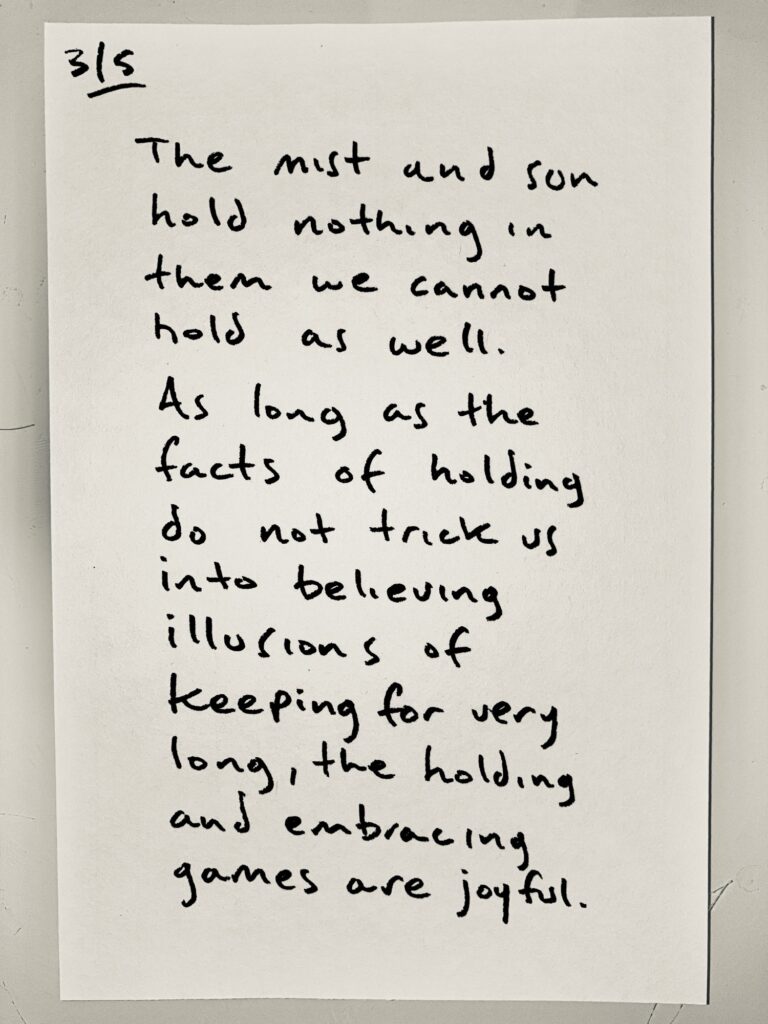 3/5
The mist and sun
hold nothing in
them we cannot
hold as well.
As long as the
facts of holding
do not trick us
into believing
illusions of
keeping for very
long, the holding
and embracing
games are joyful.